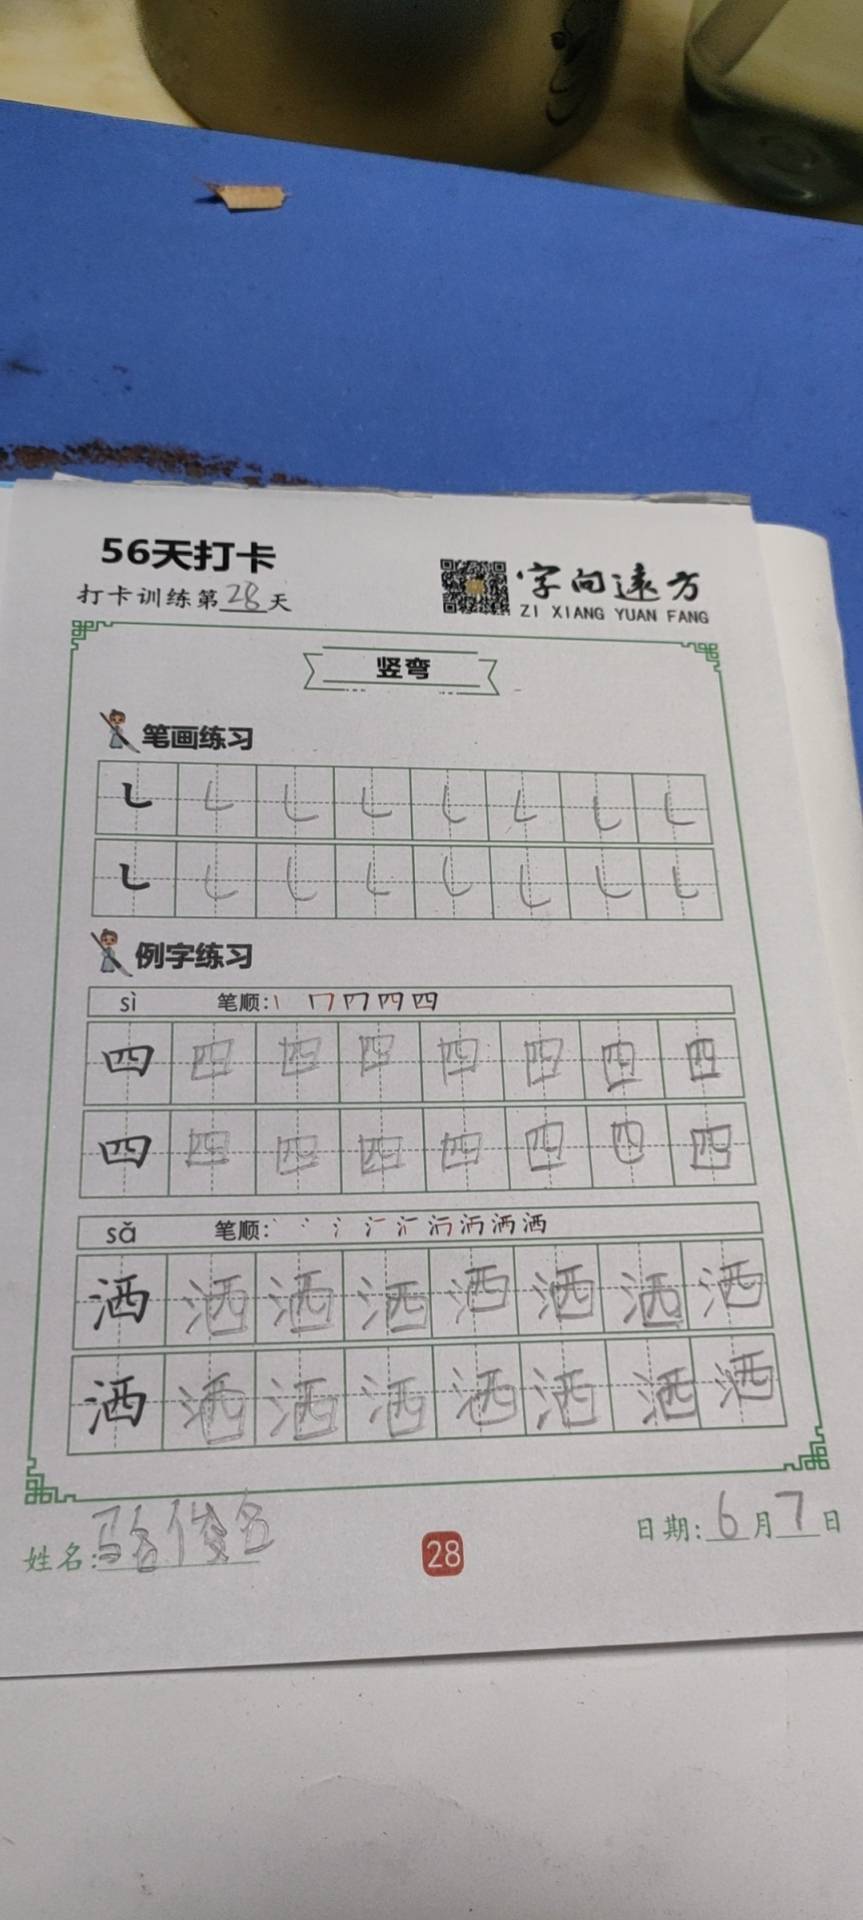 56天打卡
打卡训练第28天
字向远方
ZI XIANG YUAN FANG
竖弯
笔画练习
㇄ ㇄ ㇄ ㇄ ㇄ ㇄ ㇄ ㇄
㇄ ㇄ ㇄ ㇄ ㇄ ㇄ ㇄ ㇄
例字练习
sì 笔顺:
四 四 四 四 四 四 四 四
四 四 四 四 四 四 四 四
sǎ 笔顺:
洒 洒 洒 洒 洒 洒 洒 洒
洒 洒 洒 洒 洒 洒 洒 洒
姓名:骆俊名
28
日期:6月7日